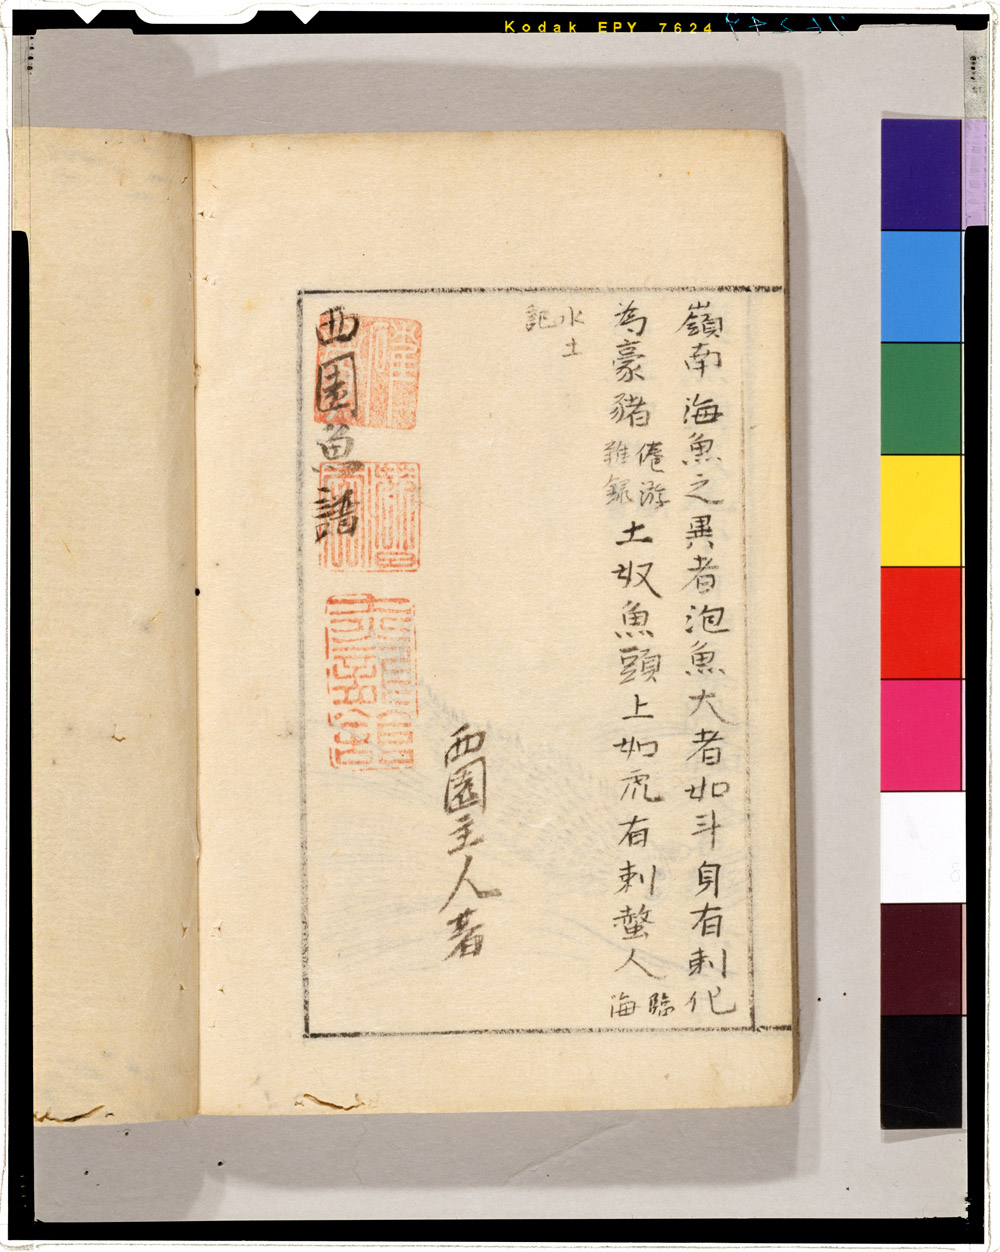 Kodak EPY 7624
嶺南海魚之異者泡魚大者如斗身有刺化
為豪豬倦游雜録土奴魚頭上如虎有刺螫人臨海
水土記
西園主人著
西園魚譜